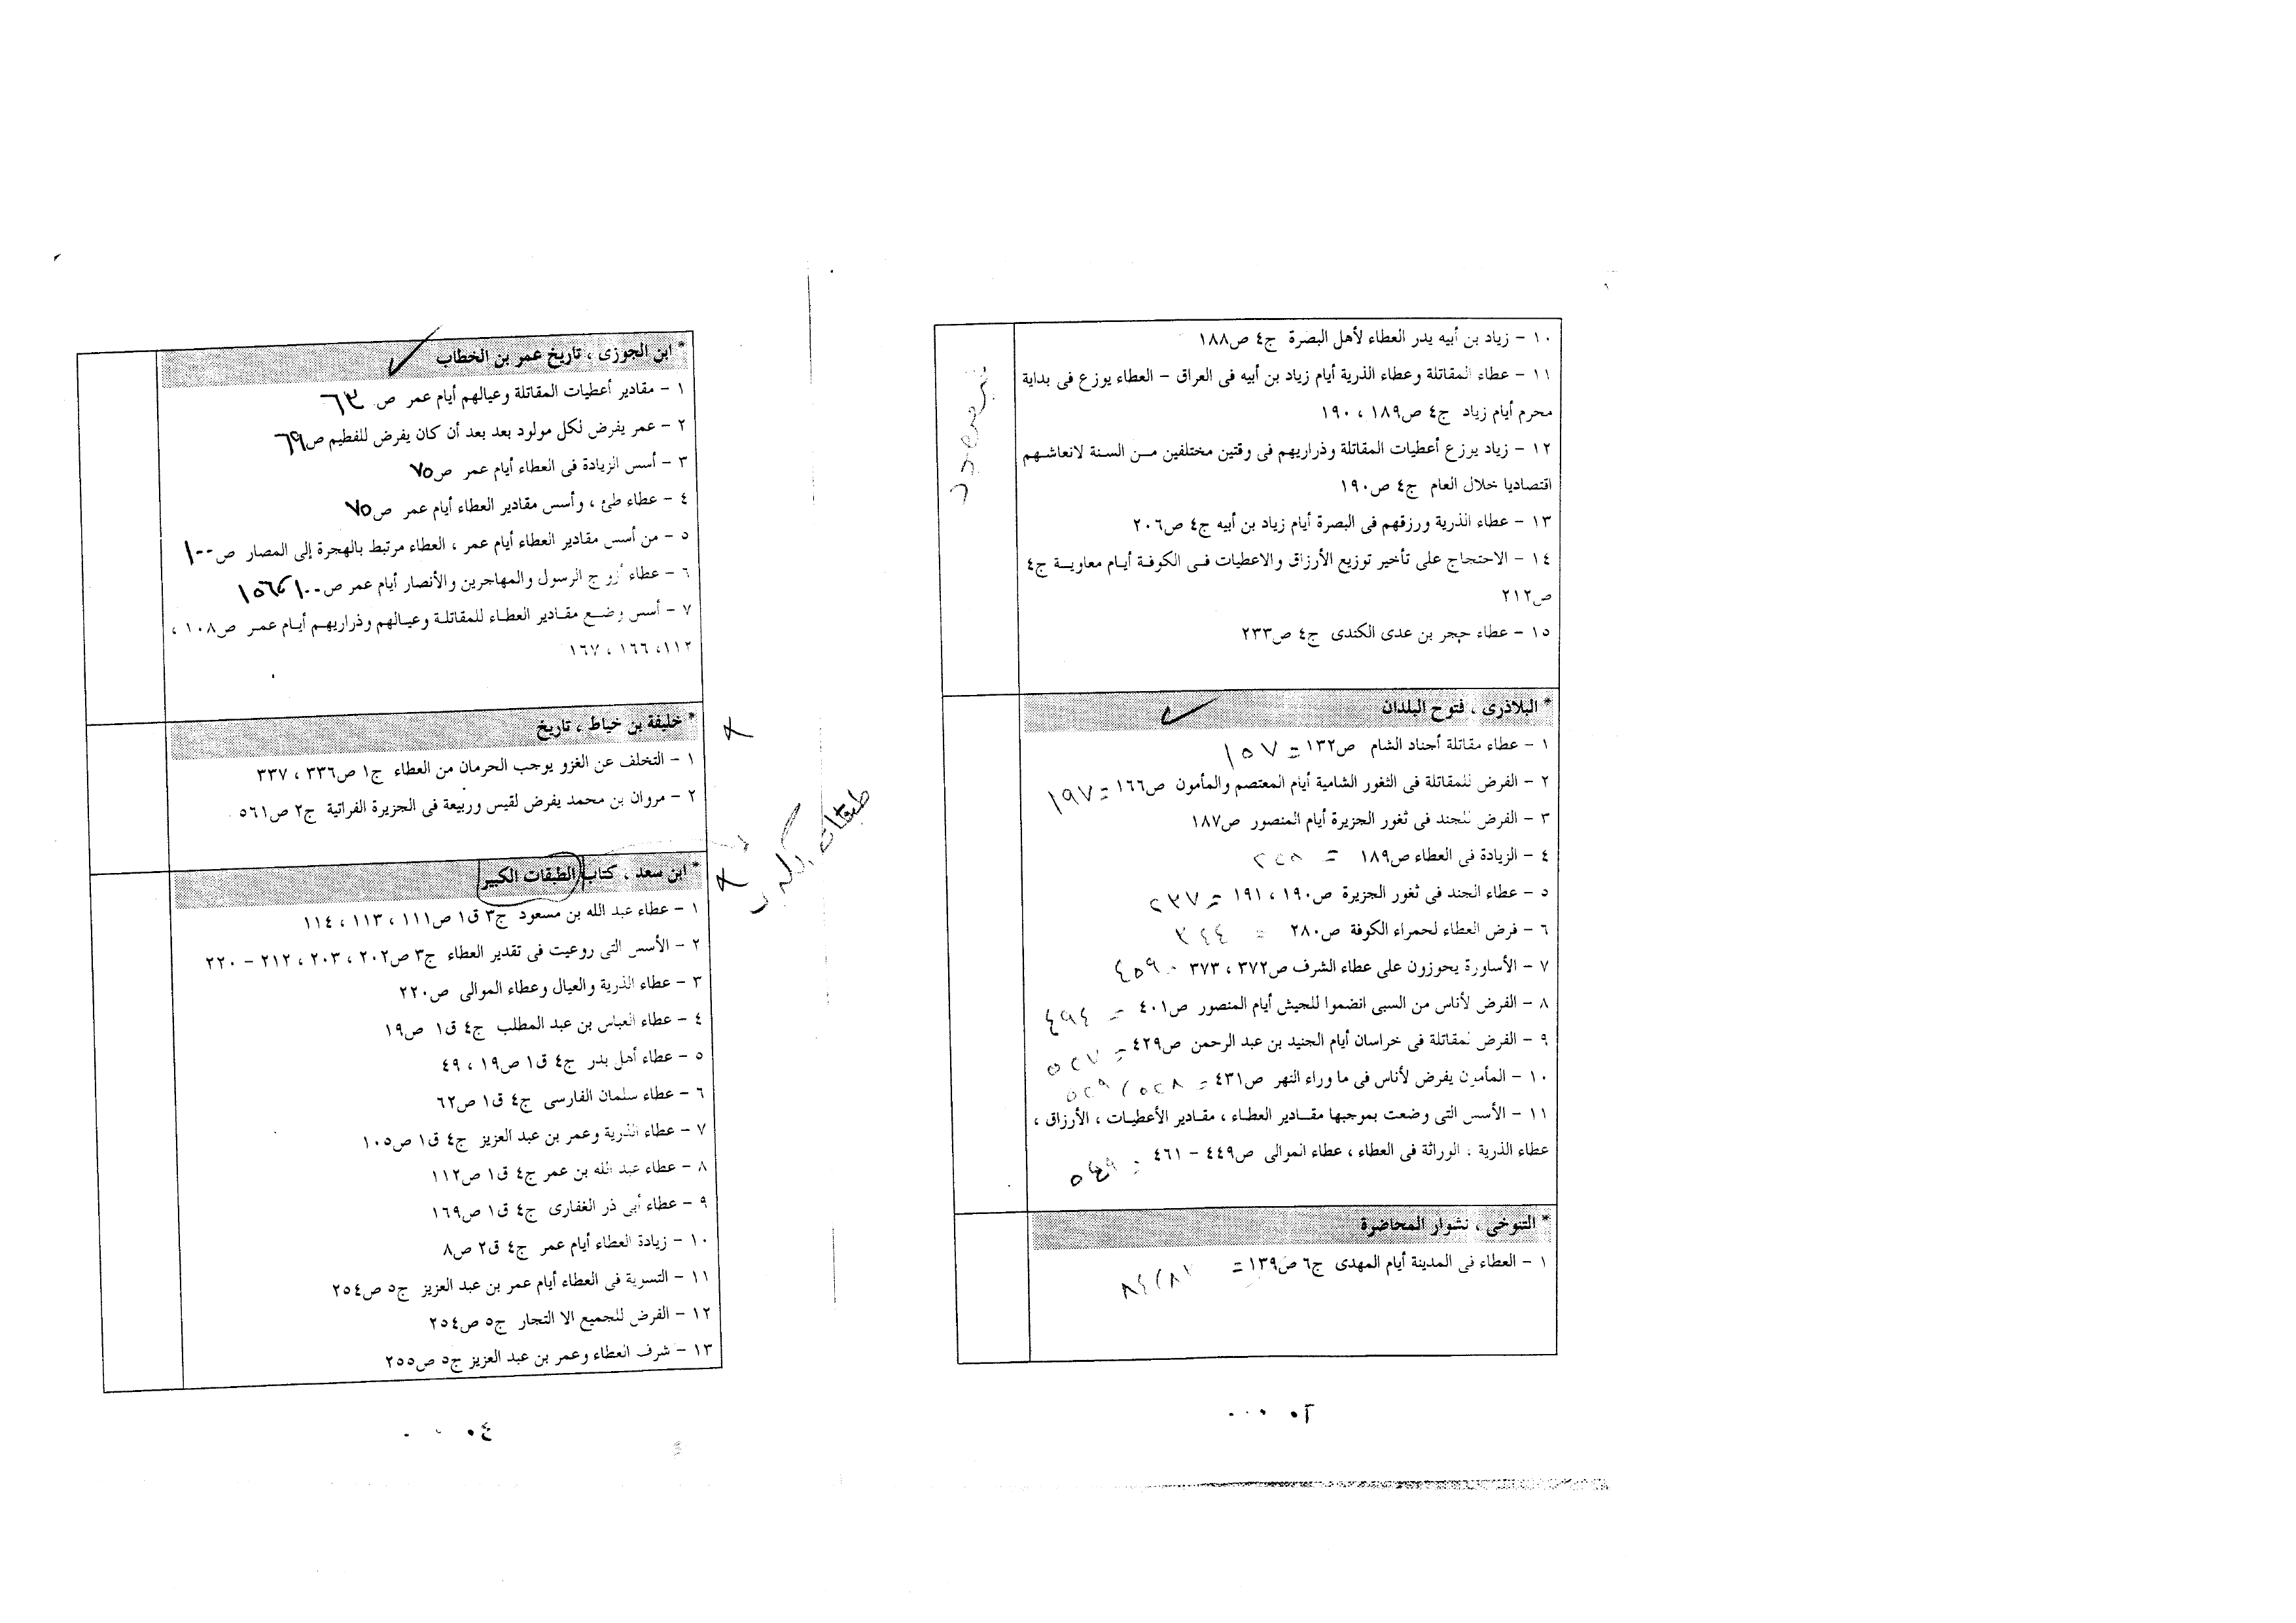 ١٠ - زياد بن أبيه يدر العطاء لأهل البصرة ج٤ ص١٨٨
١١ - عطاء المقاتلة وعطاء الذرية أيام زياد بن أبيه فى العراق - العطاء يوزع فى بداية
محرم أيام زياد ج٤ ص١٨٩ ، ١٩٠
١٢ - زياد يوزع أعطيات المقاتلة وذراريهم فى وقتين مختلفين من السنة لانعاشهم
اقتصاديا خلال العام ج٤ ص١٩٠
١٣ - عطاء الذرية ورزقهم فى البصرة أيام زياد بن أبيه ج٤ ص٢٠٦
١٤ - الاحتجاج على تأخير توزيع الأرزاق والاعطيات فى الكوفة أيام معاوية ج٤
ص٢١٢
١٥ - عطاء حجر بن عدى الكندى ج٤ ص٢٣٣
* البلاذرى ، فتوح البلدان
١ - عطاء مقاتلة أجناد الشام ص١٣٢ = ١٥٧
٢ - الفرض للمقاتلة فى الثغور الشامية أيام المعتصم والمأمون ص١٦٦ = ١٩٧
٣ - الفرض للجند فى ثغور الجزيرة أيام المنصور ص١٨٧
٤ - الزيادة فى العطاء ص١٨٩ =
٥ - عطاء الجند فى ثغور الجزيرة ص١٩٠ ، ١٩١ = ٢٣٧
٦ - فرض العطاء لحمراء الكوفة ص٢٨٠ = ٣٤٤
٧ - الأساورة يحوزون على عطاء الشرف ص٣٧٢ ، ٣٧٣ = ٤٥٩
٨ - الفرض لأناس من السبى انضموا للجيش أيام المنصور ص٤٠١ = ٤٩٤
٩ - الفرض لمقاتلة فى خراسان أيام الجنيد بن عبد الرحمن ص٤٢٩ = ٥٢٧
١٠ - المأمون يفرض لأناس فى ما وراء النهر ص٤٣١ = ٥٢٨ ، ٥٢٩
١١ - الأسس التى وضعت بموجبها مقادير العطاء ، مقادير الأعطيات ، الأرزاق ،
عطاء الذرية ، الوراثة فى العطاء ، عطاء الموالى ص٤٤٩ - ٤٦١ = ٥٤٩
* التنوخى ، نشوار المحاضرة
١ - العطاء فى المدينة أيام المهدى ج٦ ص١٣٩ =
* ابن الجوزى ، تاريخ عمر بن الخطاب
١ - مقادير أعطيات المقاتلة وعيالهم أيام عمر ص ٦٣
٢ - عمر يفرض لكل مولود بعد بعد أن كان يفرض للفطيم ص٦٩
٣ - أسس الزيادة فى العطاء أيام عمر ص٧٥
٤ - عطاء طئ ، وأسس مقادير العطاء أيام عمر ص٧٥
٥ - من أسس مقادير العطاء أيام عمر ، العطاء مرتبط بالهجرة إلى المصار ص١٠٠
٦ - عطاء أزوج الرسول والمهاجرين والأنصار أيام عمر ص١٠٠ ، ١٥٦
٧ - أسس وضع مقادير العطاء للمقاتلة وعيالهم وذراريهم أيام عمر ص١٠٨ ،
١١٢، ١٦٦ ، ١٦٧
* خليفة بن خياط ، تاريخ
١ - التخلف عن الغزو يوجب الحرمان من العطاء ج١ ص٣٣٦ ، ٣٣٧
٢ - مروان بن محمد يفرض لقيس وربيعة فى الجزيرة الفراتية ج٢ ص٥٦١
* ابن سعد ، كتاب الطبقات الكبير
١ - عطاء عبد الله بن مسعود ج٣ ق١ ص١١١ ، ١١٣ ، ١١٤
٢ - الأسس التى روعيت فى تقدير العطاء ج٣ ص٢٠٢ ، ٢٠٣ ، ٢١٢ - ٢٢٠
٣ - عطاء الذرية والعيال وعطاء الموالى ص٢٢٠
٤ - عطاء العباس بن عبد المطلب ج٤ ق١ ص١٩
٥ - عطاء أهل بدر ج٤ ق١ ص١٩ ، ٤٩
٦ - عطاء سلمان الفارسى ج٤ ق١ ص٦٢
٧ - عطاء الذرية وعمر بن عبد العزيز ج٤ ق١ ص١٠٥
٨ - عطاء عبد الله بن عمر ج٤ ق١ ص١١٢
٩ - عطاء أبى ذر الغفارى ج٤ ق١ ص١٦٩
١٠ - زيادة العطاء أيام عمر ج٤ ق٢ ص٨
١١ - التسوية فى العطاء أيام عمر بن عبد العزيز ج٥ ص٢٥٤
١٢ - الفرض للجميع الا التجار ج٥ ص٢٥٤
١٣ - شرف العطاء وعمر بن عبد العزيز ج٥ ص٢٥٥
طبقات